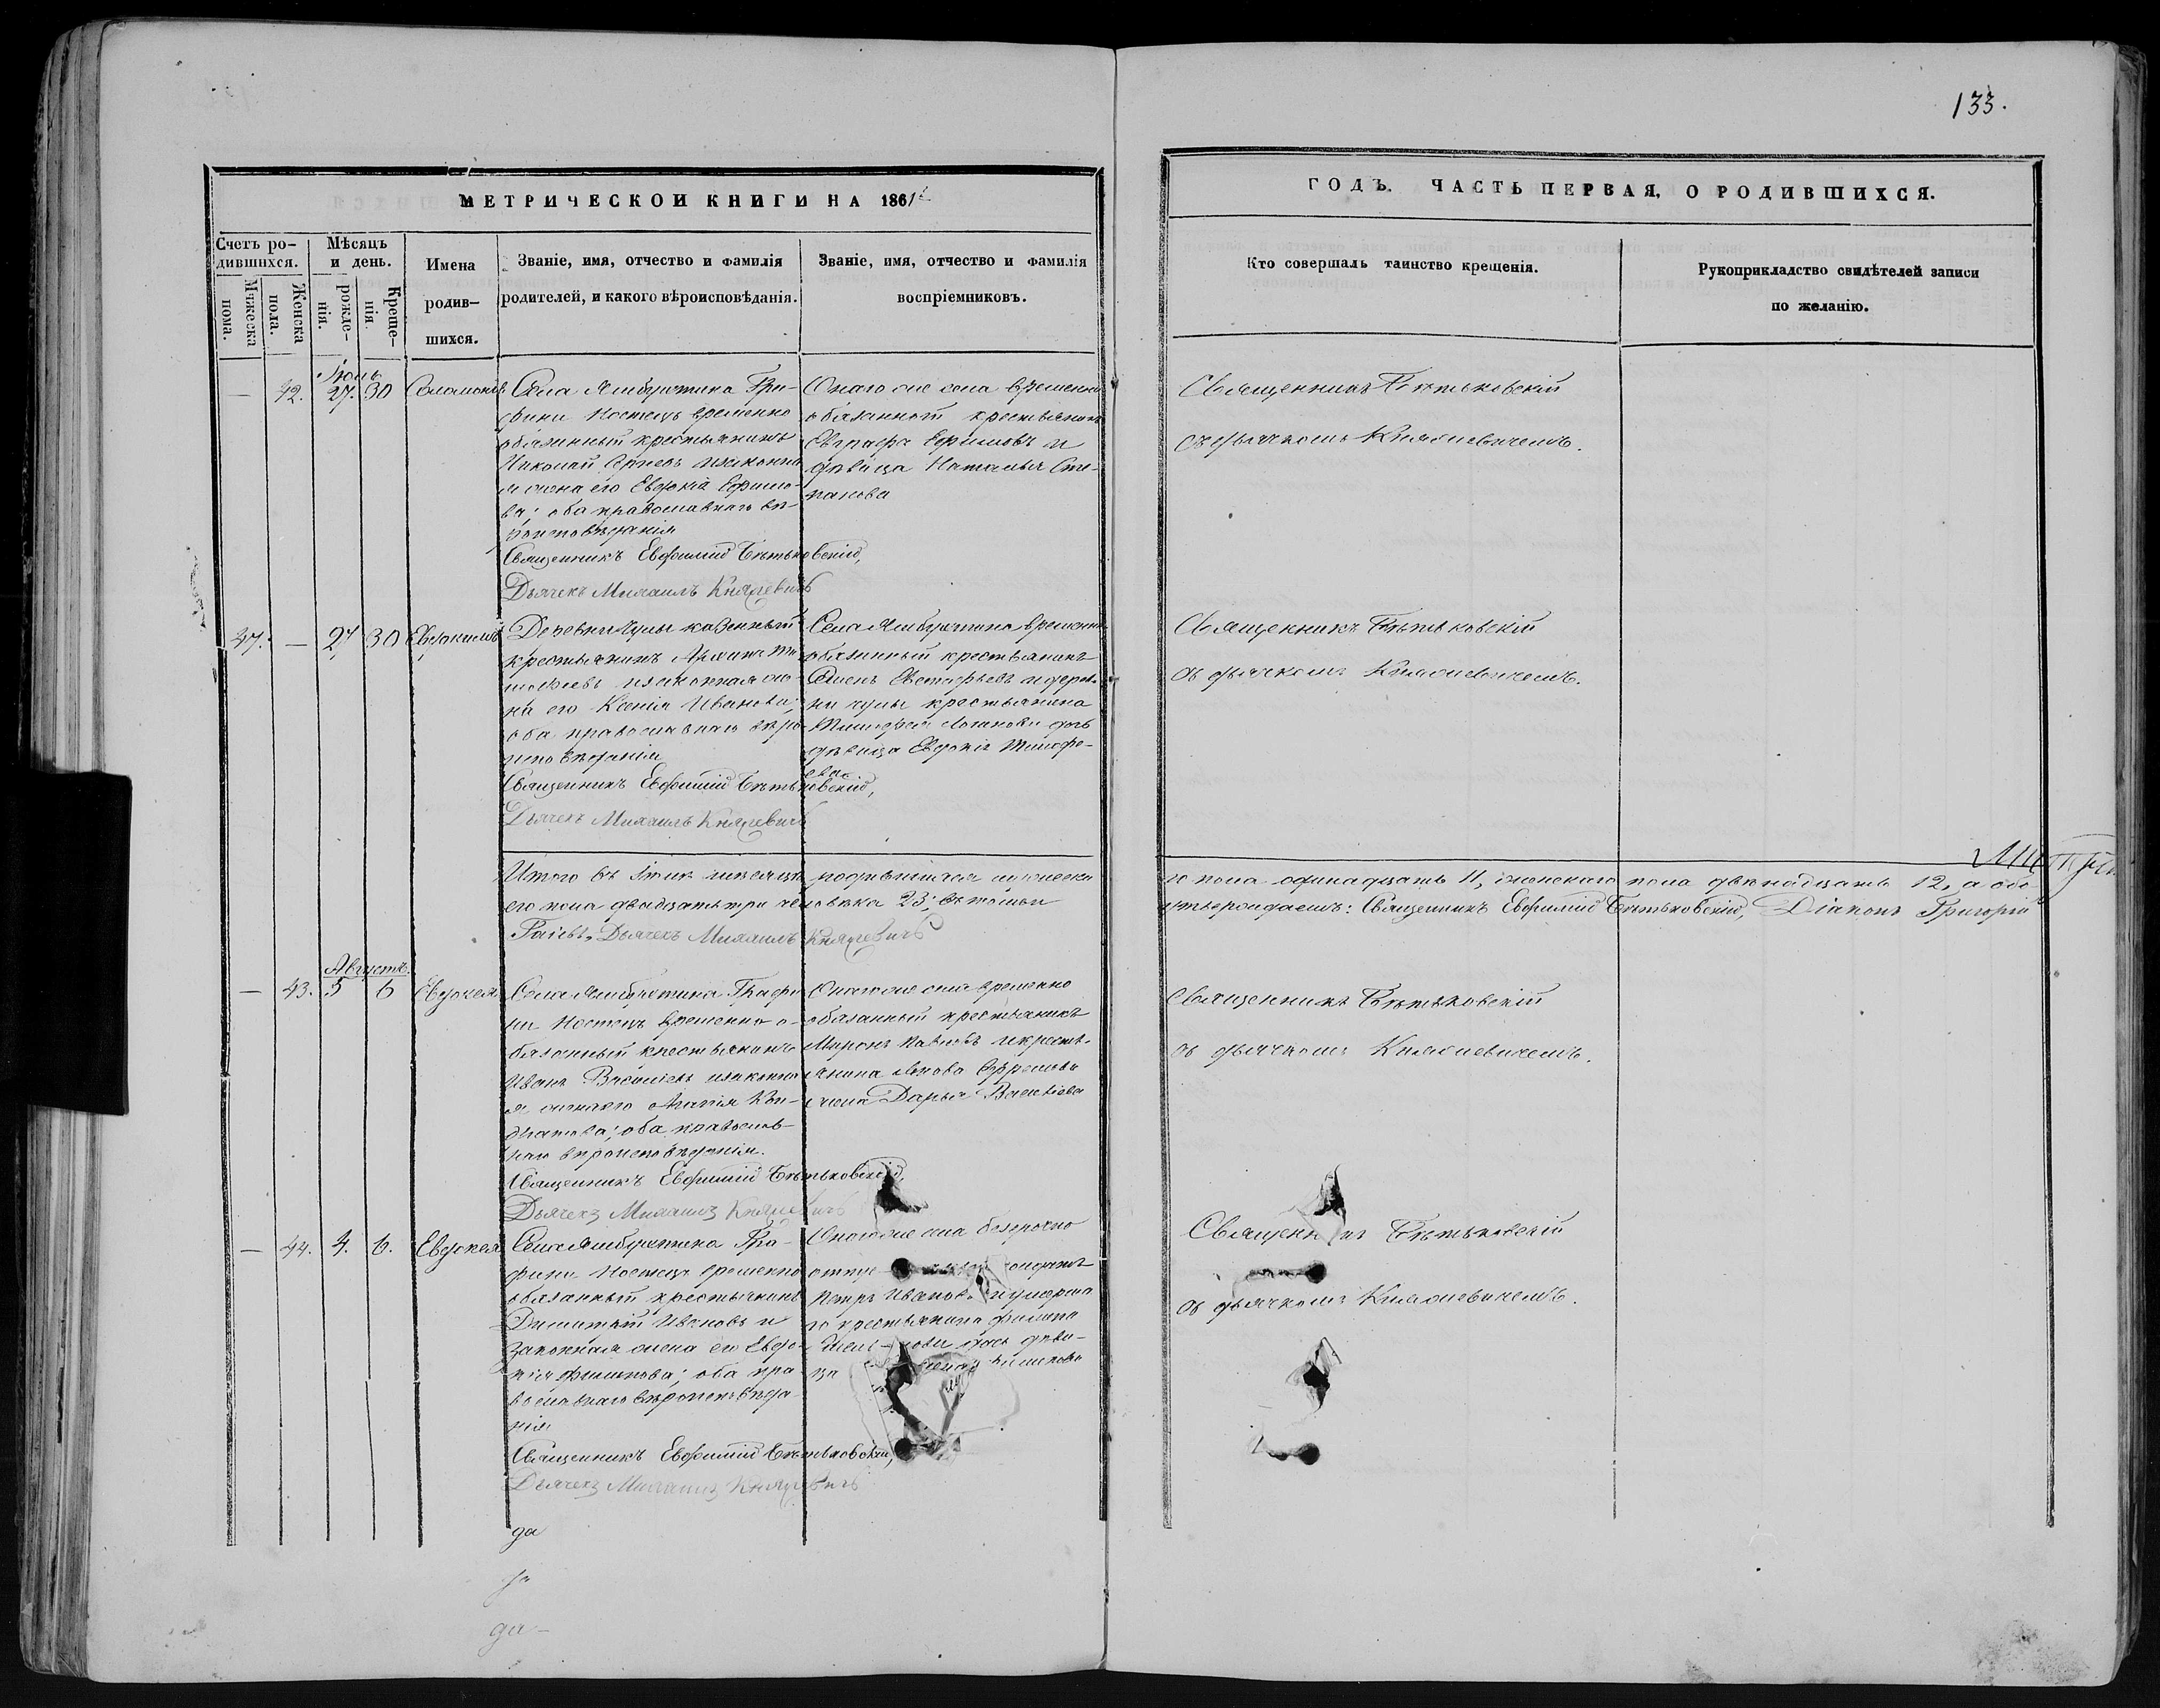 133.
МЕТРИЧЕСКОЙ КНИГИ НА 1861
ГОДЪ. ЧАСТЬ ПЕРВАЯ, О РОДИВШИХСЯ.
Счетъ ро-
дившихся.
Мужеска
пола.
Женска
пола.
Мѣсяцъ
и день.
рожде-
нія.
Креще-
нія.
Имена
родив-
шихся.
Званіе, имя, отчество и фамилія
родителей, и какого вѣроисповѣданія.
Званіе, имя, отчество и фамилія
воспріемниковъ.
Кто совершалъ таинство крещенія.
Рукоприкладство свидѣтелей записи
по желанію.
Іюль
— 42. 27. 30
Села Ямбухтина Гра-
фини Ностецъ временно
обязанный крестьянинъ
Николай Сергѣевъ изаконна
я жена его Евдокія Ефимо-
ва; оба православнаго вѣ-
роисповѣданія
Священникъ Евфимій Бѣтьковскій,
Дьячекъ Михаилъ Княжевичъ
Онаго же села временно
обязанной крестьянинъ
Евграфъ Ефимовъ и
дѣвица Наталья Сте-
панова
Священникъ Бѣтьковскій
съ дьячкомъ Княжевичемъ.
47. — 27 30 Евдокимъ
Деревни казенный
крестьянинъ
изаконная же-
на его Ксенія Иванова;
оба православнаго вѣро-
исповѣданія
Священникъ Евфимій Бѣтьковскій,
Дьячекъ Михаилъ Княжевичъ
Села Ямбухтина временно
обязанный крестьянинъ
Семенъ Евстафьевъ идерев-
ни крестьянина
Тимофея дочь
дѣвица Евдокія Тимофе-
ева
Священникъ Бѣтьковскій
съ дьячкомъ Княжевичемъ.
Итого въ Іюлѣ мѣсяцѣ родившихся мужеска
го пола одинадцать 11, женскаго пола двѣнадцать 12, а обо-
его пола двадцать три человѣка 23; въ томъ и
утверждаемъ: Священникъ Евфимій Бѣтьковскій, Діаконъ Григорій
Гаіевъ, Дьячекъ Михаилъ Княжевичъ
Августъ.
— 43. 5 6 Евдокея
Села Ямбухтина Графи
ни Ностецъ временно о-
бязанный крестьянинъ
Иванъ Васильевъ изаконна
я жена его Агапія Кон-
дратова; оба православ-
наго вѣроисповѣданія.
Священникъ Евфимій Бѣтьковскій,
Дьячекъ Михаилъ Княжевичъ
Онагоже села временно
обязанный крестьянинъ
Миронъ Павловъ икресть-
янина Ефремова
жена Дарья Васильева
Священникъ Бѣтьковскій
съ дьячкомъ Княжевичемъ.
— 44. 4. 6. Евдокея
Села Ямбухтина Гра-
фини Ностецъ временно
обязанный крестьянинъ
Димитрій Ивановъ и
законная жена его Евдо-
кія Филипова; оба пра-
вославнаго вѣроисповѣда-
нія
Священникъ Евфимій Бѣтьковскій,
Дьячекъ Михаилъ Княжевичъ
Онагоже села безсрочно
Петръ Иванов
го крестьянина Филипа
дочь дѣви-
ца
Бѣтьковскій
съ дьячкомъ Княжевичемъ.
да
да